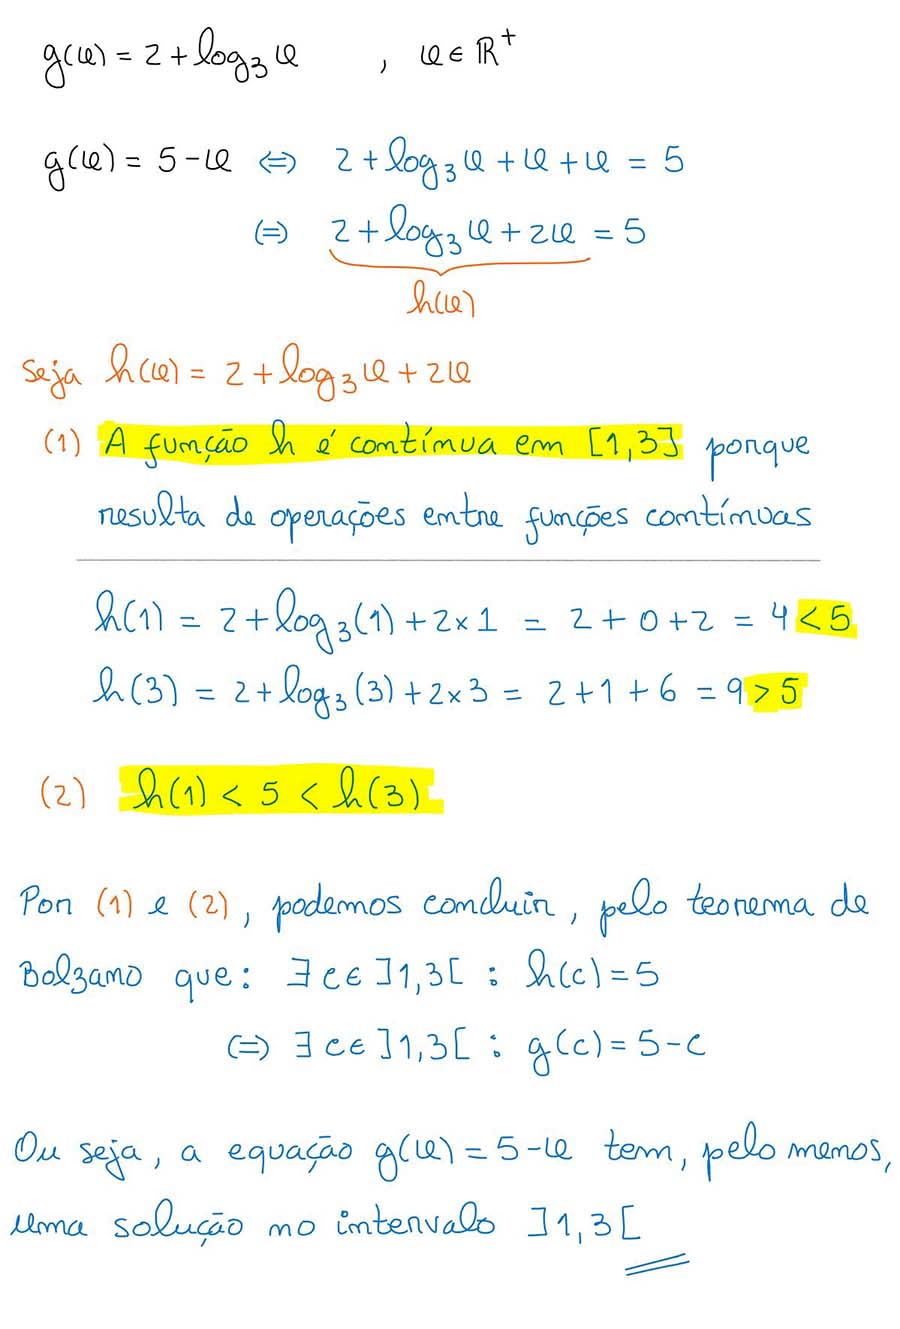 g(x) = 2 + log₃ x , x ∈ ℝ⁺
g(x) = 5 - x ⇔ 2 + log₃ x + x + x = 5
⇔ 2 + log₃ x + 2x = 5
h(x)
Seja h(x) = 2 + log₃ x + 2x
(1) A função h é contínua em [1,3] porque
resulta de operações entre funções contínuas
h(1) = 2 + log₃(1) + 2×1 = 2 + 0 + 2 = 4 < 5
h(3) = 2 + log₃(3) + 2×3 = 2 + 1 + 6 = 9 > 5
(2) h(1) < 5 < h(3)
Por (1) e (2), podemos concluir, pelo teorema de
Bolzano que: ∃ c ∈ ]1,3[ : h(c) = 5
⇔ ∃ c ∈ ]1,3[ : g(c) = 5 - c
Ou seja, a equação g(x) = 5 - x tem, pelo menos,
uma solução no intervalo ]1,3[